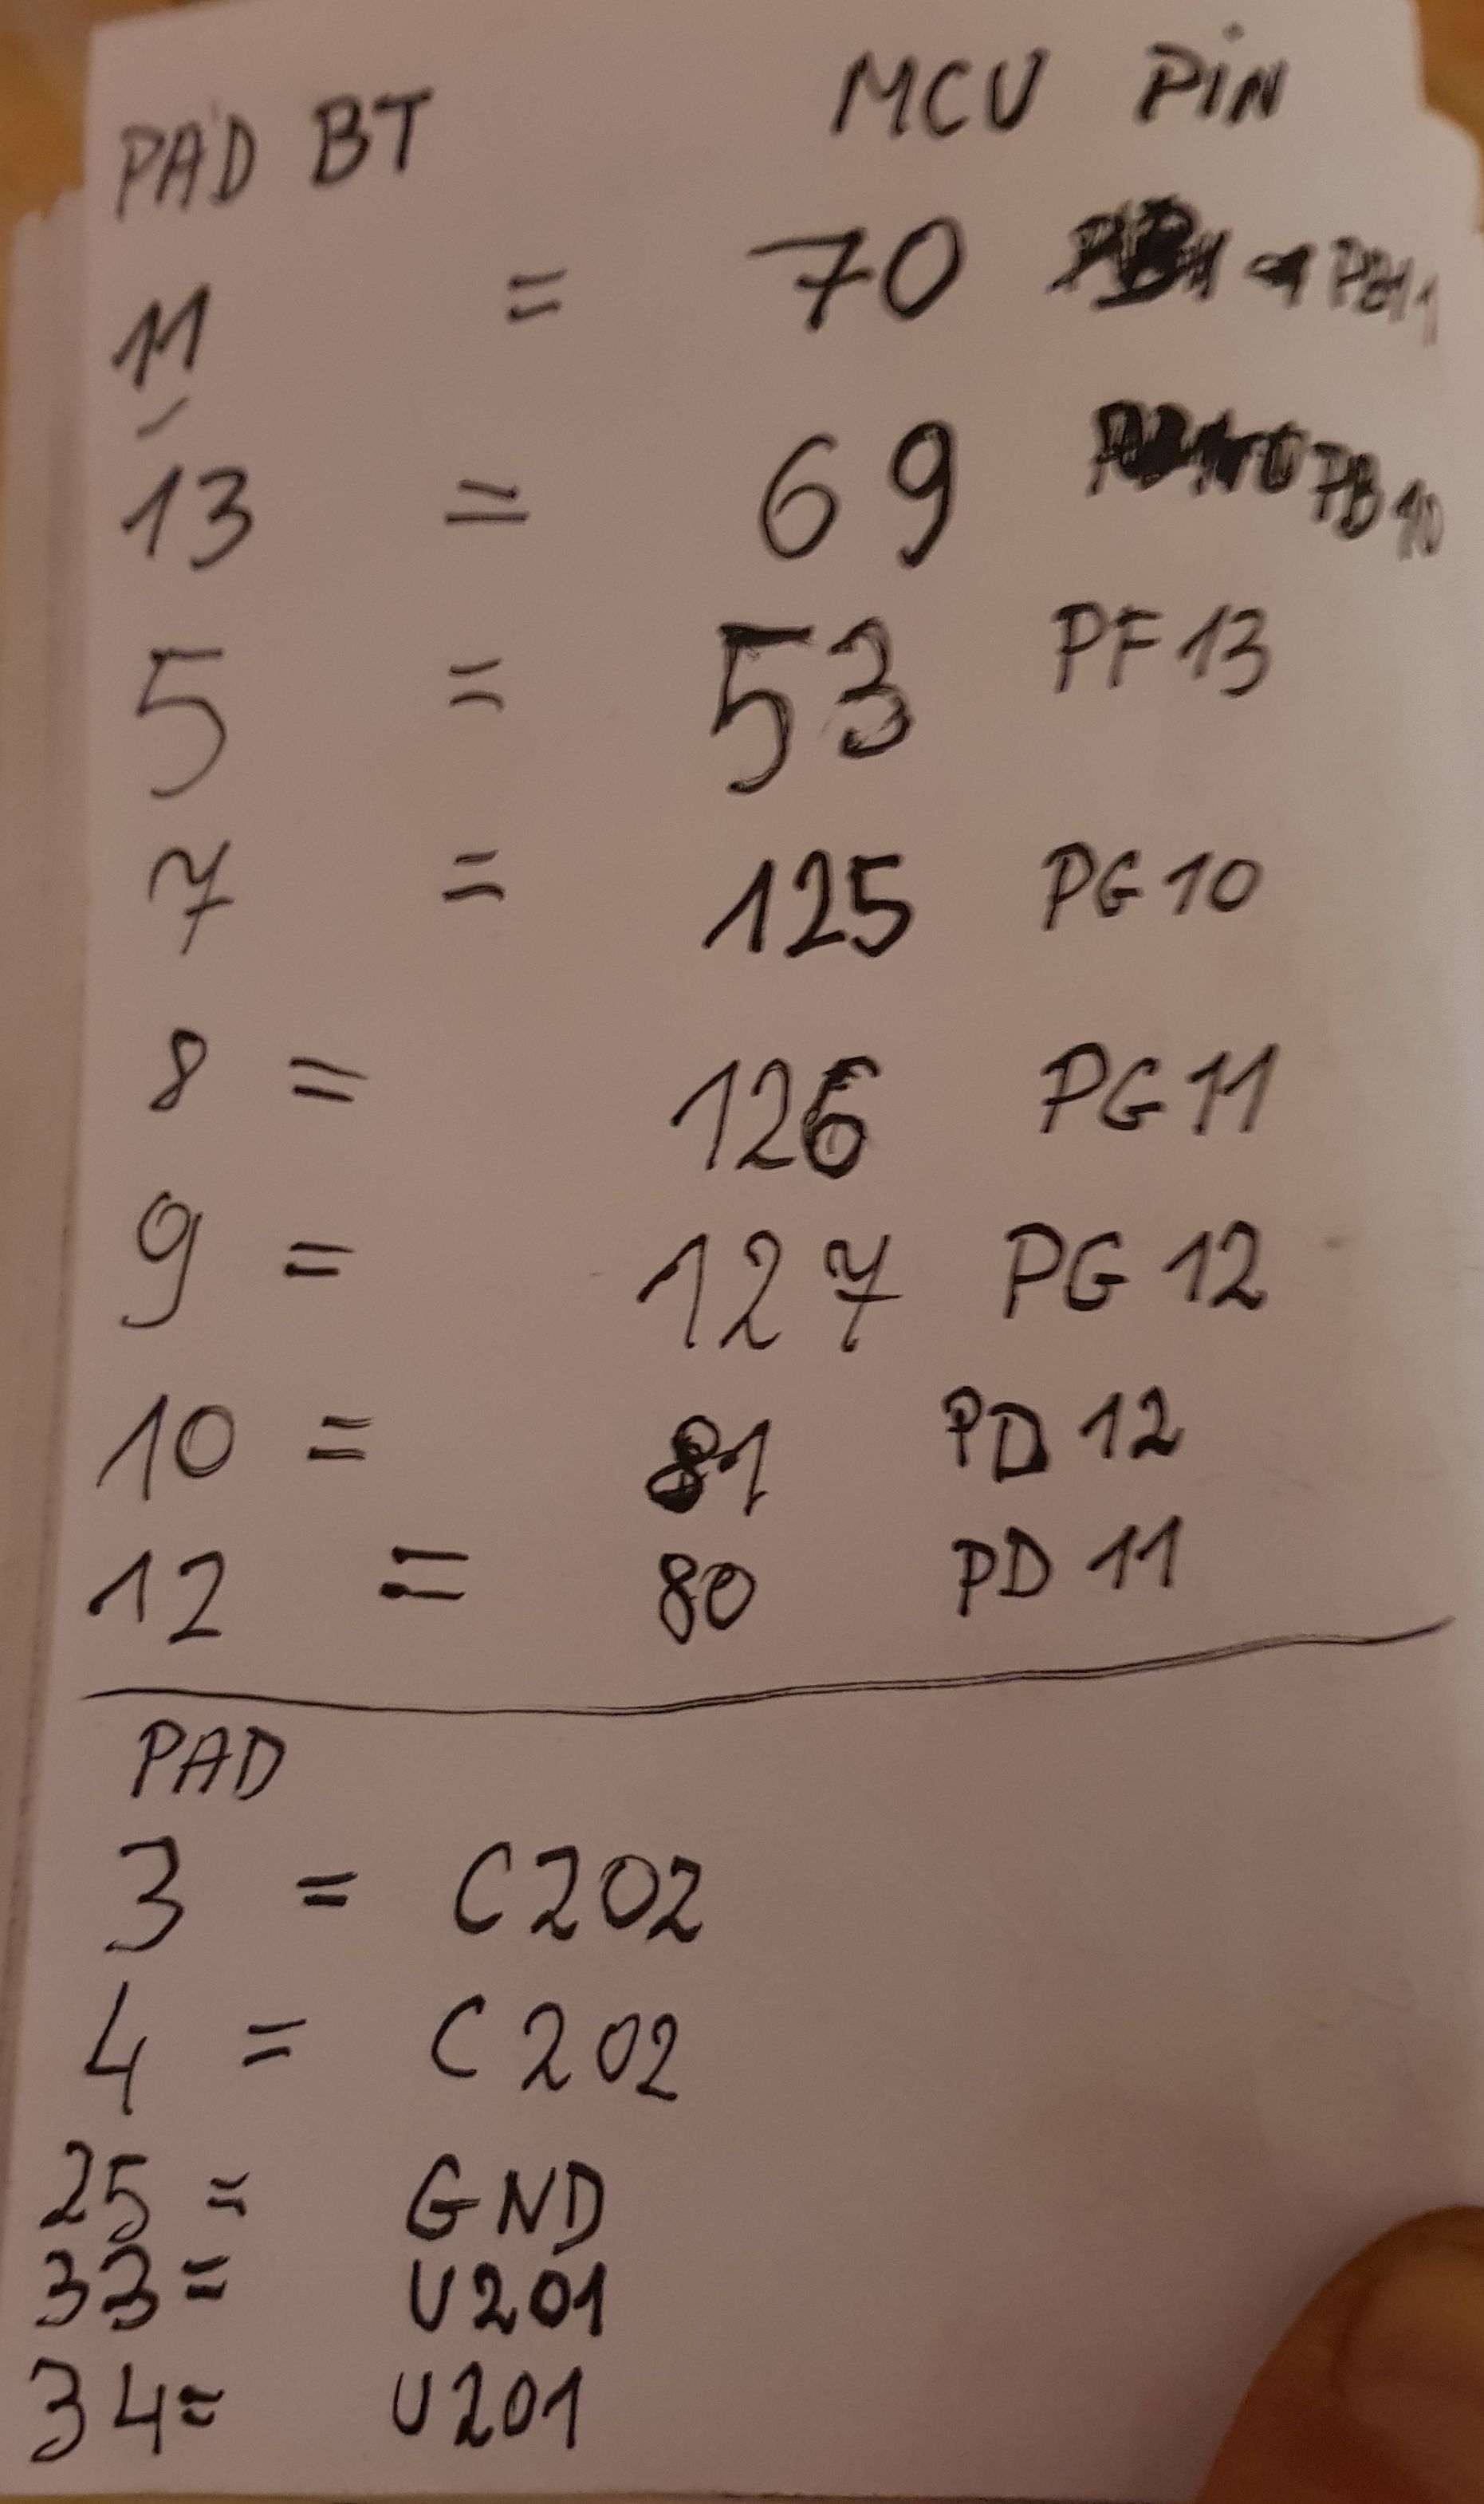 PAD BT MCU PIN
11 = 70 PB11
13 = 69 PB10
5 = 53 PF13
7 = 125 PG10
8 = 126 PG11
9 = 127 PG12
10 = 81 PD12
12 = 80 PD11
PAD
3 = C202
4 = C202
25 = GND
33 = U201
34 = U201